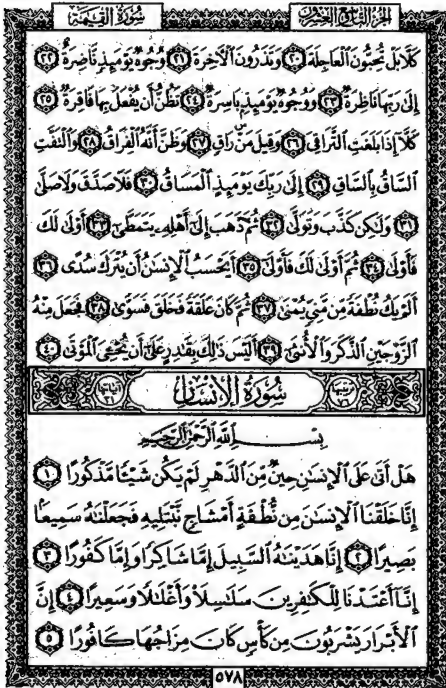 سُورَةُ القِيَامَة
الجُزْءُ التَّاسِعُ وَالعِشْرُونَ
كَلَّا بَلْ تُحِبُّونَ ٱلْعَاجِلَةَ ٢٠ وَتَذَرُونَ ٱلْأٓخِرَةَ ٢١ وُجُوهٌ يَوْمَئِذٍ نَّاضِرَةٌ ٢٢
إِلَىٰ رَبِّهَا نَاظِرَةٌ ٢٣ وَوُجُوهٌ يَوْمَئِذٍۭ بَاسِرَةٌ ٢٤ تَظُنُّ أَن يُفْعَلَ بِهَا فَاقِرَةٌ ٢٥
كَلَّآ إِذَا بَلَغَتِ ٱلتَّرَاقِيَ ٢٦ وَقِيلَ مَنْۜ رَاقٍ ٢٧ وَظَنَّ أَنَّهُ ٱلْفِرَاقُ ٢٨ وَٱلْتَفَّتِ
ٱلسَّاقُ بِٱلسَّاقِ ٢٩ إِلَىٰ رَبِّكَ يَوْمَئِذٍ ٱلْمَسَاقُ ٣٠ فَلَا صَدَّقَ وَلَا صَلَّىٰ
٣١ وَلَٰكِن كَذَّبَ وَتَوَلَّىٰ ٣٢ ثُمَّ ذَهَبَ إِلَىٰٓ أَهْلِهِۦ يَتَمَطَّىٰٓ ٣٣ أَوْلَىٰ لَكَ
فَأَوْلَىٰ ٣٤ ثُمَّ أَوْلَىٰ لَكَ فَأَوْلَىٰٓ ٣٥ أَيَحْسَبُ ٱلْإِنسَٰنُ أَن يُتْرَكَ سُدًى ٣٦
أَلَمْ يَكُ نُطْفَةً مِّن مَّنِىٍّ يُمْنَىٰ ٣٧ ثُمَّ كَانَ عَلَقَةً فَخَلَقَ فَسَوَّىٰ ٣٨ فَجَعَلَ مِنْهُ
ٱلزَّوْجَيْنِ ٱلذَّكَرَ وَٱلْأُنثَىٰٓ ٣٩ أَلَيْسَ ذَٰلِكَ بِقَٰدِرٍ عَلَىٰٓ أَن يُحْـِۧىَ ٱلْمَوْتَىٰ ٤٠
سُورَةُ الإِنسَان
بِسْمِ ٱللَّهِ ٱلرَّحْمَٰنِ ٱلرَّحِيمِ
هَلْ أَتَىٰ عَلَى ٱلْإِنسَٰنِ حِينٌ مِّنَ ٱلدَّهْرِ لَمْ يَكُن شَيْـًٔا مَّذْكُورًا ١
إِنَّا خَلَقْنَا ٱلْإِنسَٰنَ مِن نُّطْفَةٍ أَمْشَاجٍ نَّبْتَلِيهِ فَجَعَلْنَٰهُ سَمِيعًۢا
بَصِيرًا ٢ إِنَّا هَدَيْنَٰهُ ٱلسَّبِيلَ إِمَّا شَاكِرًا وَإِمَّا كَفُورًا ٣
إِنَّآ أَعْتَدْنَا لِلْكَٰفِرِينَ سَلَٰسِلَا۟ وَأَغْلَٰلًا وَسَعِيرًا ٤ إِنَّ
ٱلْأَبْرَارَ يَشْرَبُونَ مِن كَأْسٍ كَانَ مِزَاجُهَا كَافُورًا ٥
٥٧٨